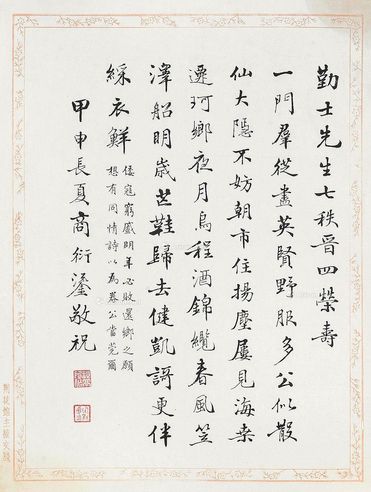 勤士先生七秩晉四榮壽
一門羣從盡英賢野服多公似散
仙大隱不妨朝市住揚塵屢見海桑
遷珂鄉夜月烏程酒錦纜春風笠
澤船明歲芒鞵歸去健凱謌更伴
綵衣鮮
倭寇窮蹙明年必敗還鄉之願
想有同情詩以為券公當莞爾
甲申長夏商衍鎏敬祝